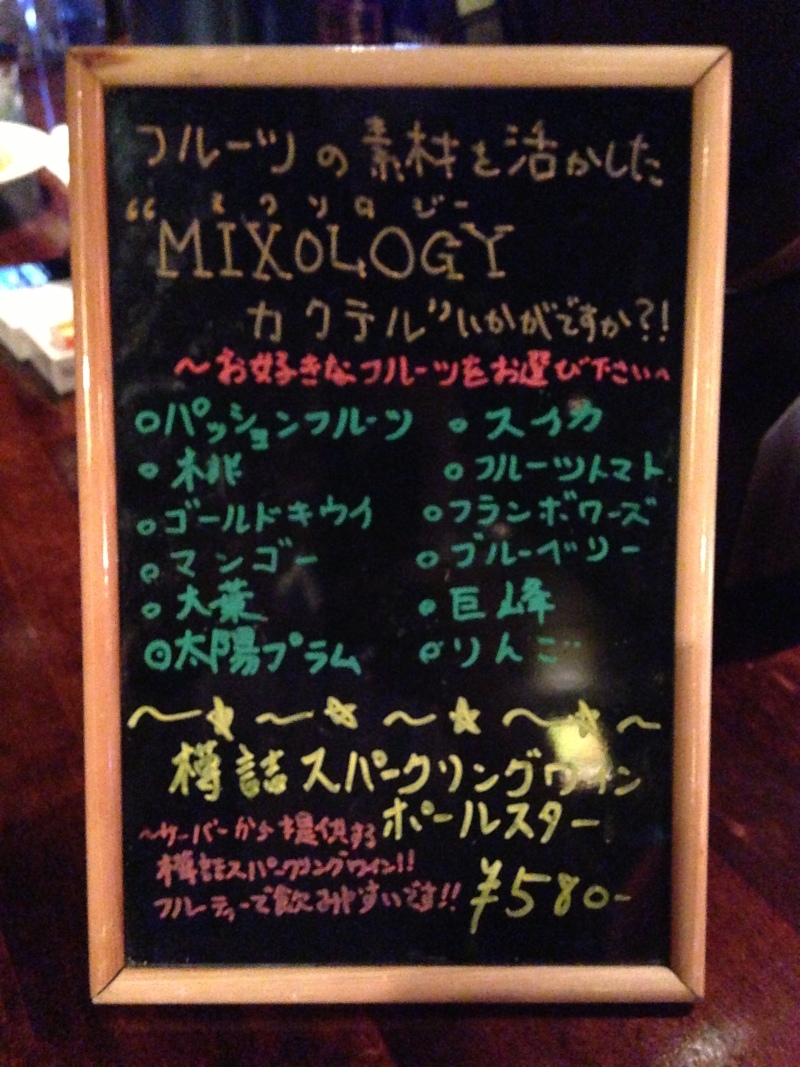 フルーツの素材を活かした
ミクソロジー
“MIXOLOGY
カクテル”いかがですか?!
～お好きなフルーツをお選び下さい～
○パッションフルーツ ○スイカ
○桃 ○フルーツトマト
○ゴールドキウイ ○フランボワーズ
○マンゴー ○ブルーベリー
○大葉 ○巨峰
○太陽プラム ○りんご
～☆～☆～☆～☆～
樽詰スパークリングワイン
ポールスター
～サーバーから提供する
樽詰スパークリングワイン!!
フルーティーで飲みやすいです!!
¥580-